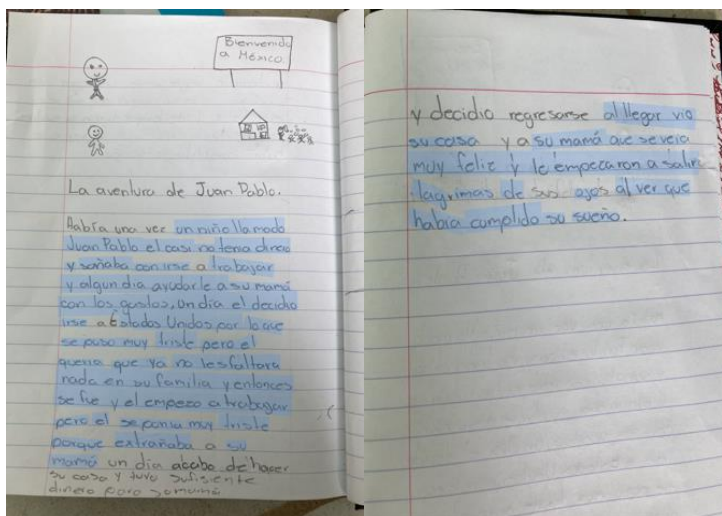 Bienvenido
a México
La aventura de Juan Pablo.
Había una vez un niño llamado
Juan Pablo el casi no tenia dinero
y soñaba con irse a trabajar
y algun dia ayudarle a su mamá
con los gastos, Un dia el decidio
irse a Estados Unidos por lo que
se puso muy triste pero el
queria que ya no les faltara
nada en su familia y entonces
se fue y el empezo a trabajar
pero el se ponia muy triste
porque extrañaba a su
mamá un dia acabo de hacer
su casa y tuvo sufisiente
dinero para su mamá
y decidio regresarse al llegar vio
su casa y a su mamá que se veia
muy feliz y le empezaron a salir
lagrimas de sus ojos al ver que
habia cumplido su sueño.